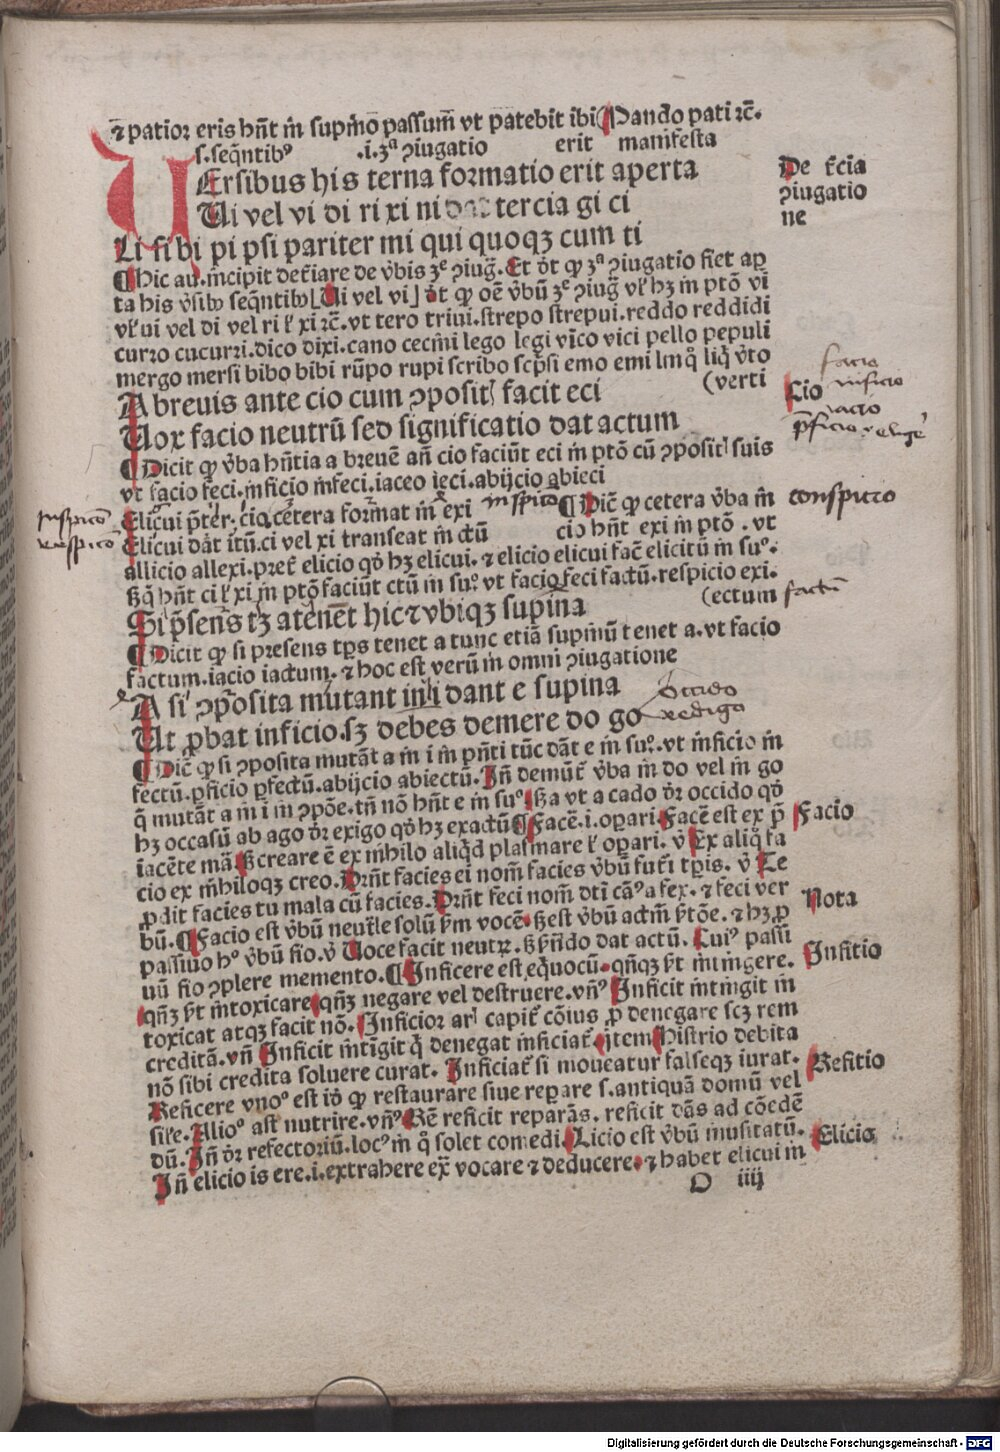 ⁊ patior eris hn̄t in supīno passum̄ vt patebit ibi Pando pati ⁊c̄.
s. seqn̄tibꝰ .i. ȝᵃ ꝯiugatio erit manifesta
VErsibus his terna formatio erit aperta
Ui vel vi di ri xi ni dat tercia gi ci
Li si bi pi psi pariter mi qui quoqꝫ cum ti
De t̄cia
ꝯiugatio
ne
¶ Hic au. incipit det̄iare de v̄bis ȝᵉ ꝯiuḡ. Et dt̄ ꝙ ȝᵃ ꝯiugatio fiet ap
ta his v̄sibꝰ seqn̄tibꝰ Ui vel vi dt̄ ꝙ oē v̄bū ȝᵉ ꝯiuḡ vl̓ hꝫ in ptō vi
vl̓ ui vel di vel ri l̓ xi ⁊c̄. vt tero triui. strepo strepui. reddo reddidi
curro cucurri. dico dixi. cano cecini lego legi vīco vici pello pepuli
mergo mersi bibo bibi rūpo rupi scribo scp̄si emo emi linq̄ liq̄ v̄to
(verti
A breuis ante cio cum ꝯposit̄ facit eci
Uox facio neutrū sed significatio dat actum
Cio
facio
inficio
iacio
p̄ficio
¶ Dicit ꝙ v̄ba hn̄tia a breuē an̄ cio faciūt eci in ptō cū ꝯposit̄ suis
vt facio feci. inficio infeci. iaceo ieci. abijcio abieci
Elicui p̄ter. cio cetera format in exi inspicio ¶ Dic̄ ꝙ cetera v̄ba in
conspicio
inspicio
respicio
Elicui dāt itū. ci vel xi transeat in ctū cio hn̄t exi in ptō. vt
allicio allexi. pret̄ elicio qd̄ hꝫ elicui. ⁊ elicio elicui fac̄ elicitū in suꝰ.
Sꝫ q̄ hn̄t ci l̓ xi in ptō faciūt ctū in suꝰ. vt facio feci factū. respicio exi.
(ectum factū
Si p̄sens tꝫ a tenēt hic ⁊ vbiqꝫ supina
¶ Dicit ꝙ si presens tp̄s tenet a tunc etiā supinū tenet a. vt facio
factum. iacio iactum. ⁊ hoc est verū in omni ꝯiugatione
A si ꝯp̄osita mutant in i dant e supina
occido
Ut ꝓbat inficio. sꝫ debes demere do go
redigo
¶ Dic̄ ꝙ si ꝯposita mutāt a in i in pn̄ti tūc dāt e in suꝰ. vt inficio in
fectū. ꝑficio ꝑfectū. abijcio abiectū. In̄ demūt̄ v̄ba in do vel in go
q̄ mutāt a in i in ꝯpōe. tn̄ nō hn̄t e in suꝰ. Sꝫ a vt a cado dr̄ occido qd̄
hꝫ occasū ab ago dr̄ exigo qd̄ hꝫ exactū ¶ Facē. i. oꝑari. Facē est ex p̄
Facio
iacēte mā. Sꝫ creare ē ex nihilo aliqd̄ plasmare l̓ oꝑari. v̓ Ex aliq̄ fa
cio ex nihiloqꝫ creo. Drn̄t facies ei nom̄ facies v̄bū futi tp̄is. v̓ Te
ꝑdit facies tu mala cū facies. Drn̄t feci nom̄ dt̄i cāꝰ a fex. ⁊ feci ver
bū. ¶ Facio est v̄bū neutr̄le solū sm̄ vocē. Sꝫ est v̄bū actiū sn̄tōe. ⁊ hꝫ ꝓ
Nota
passiuo hꝰ v̄bū fio. v̓ Uoce facit neutꝝ. Sꝫ sn̄do dat actū. Cuiꝰ passū
uū fio ꝯplere memento. ¶ Inficere est eq̄uocū. qn̄qꝫ st̄ intingere.
Infitio
qn̄qꝫ st̄ intoxicare qn̄qꝫ negare vel destruere. vn̄ꝰ Inficit intingit in
toxicat atqꝫ facit nō. Inficior ar̄ capit̄ cōius ꝓ denegare scꝫ rem
creditā. vn̄ Inficit intīgit q̄ denegat inficiat̄. Item Histrio debita
nō sibi credita soluere curat. Inficiat̄ si moueatur falseqꝫ iurat.
Reficere vnoꝰ est id̄ ꝙ restaurare siue reparare s. antiquā domū vel
Refitio
sil̓e. Alioꝰ ast̄ nutrire. vn̄ꝰ Rē reficit reparās. reficit dās ad cōedē
dū. In̄ dr̄ refectoriū. locꝰ in q̄ solet comedi. Licio est v̄bū inusitatū.
Elicio
In̄ elicio is ere. i. extrahere ex̄ vocare ⁊ deducere. ⁊ habet elicui in
D iiij
Digitalisierung gefördert durch die Deutsche Forschungsgemeinschaft - DFG